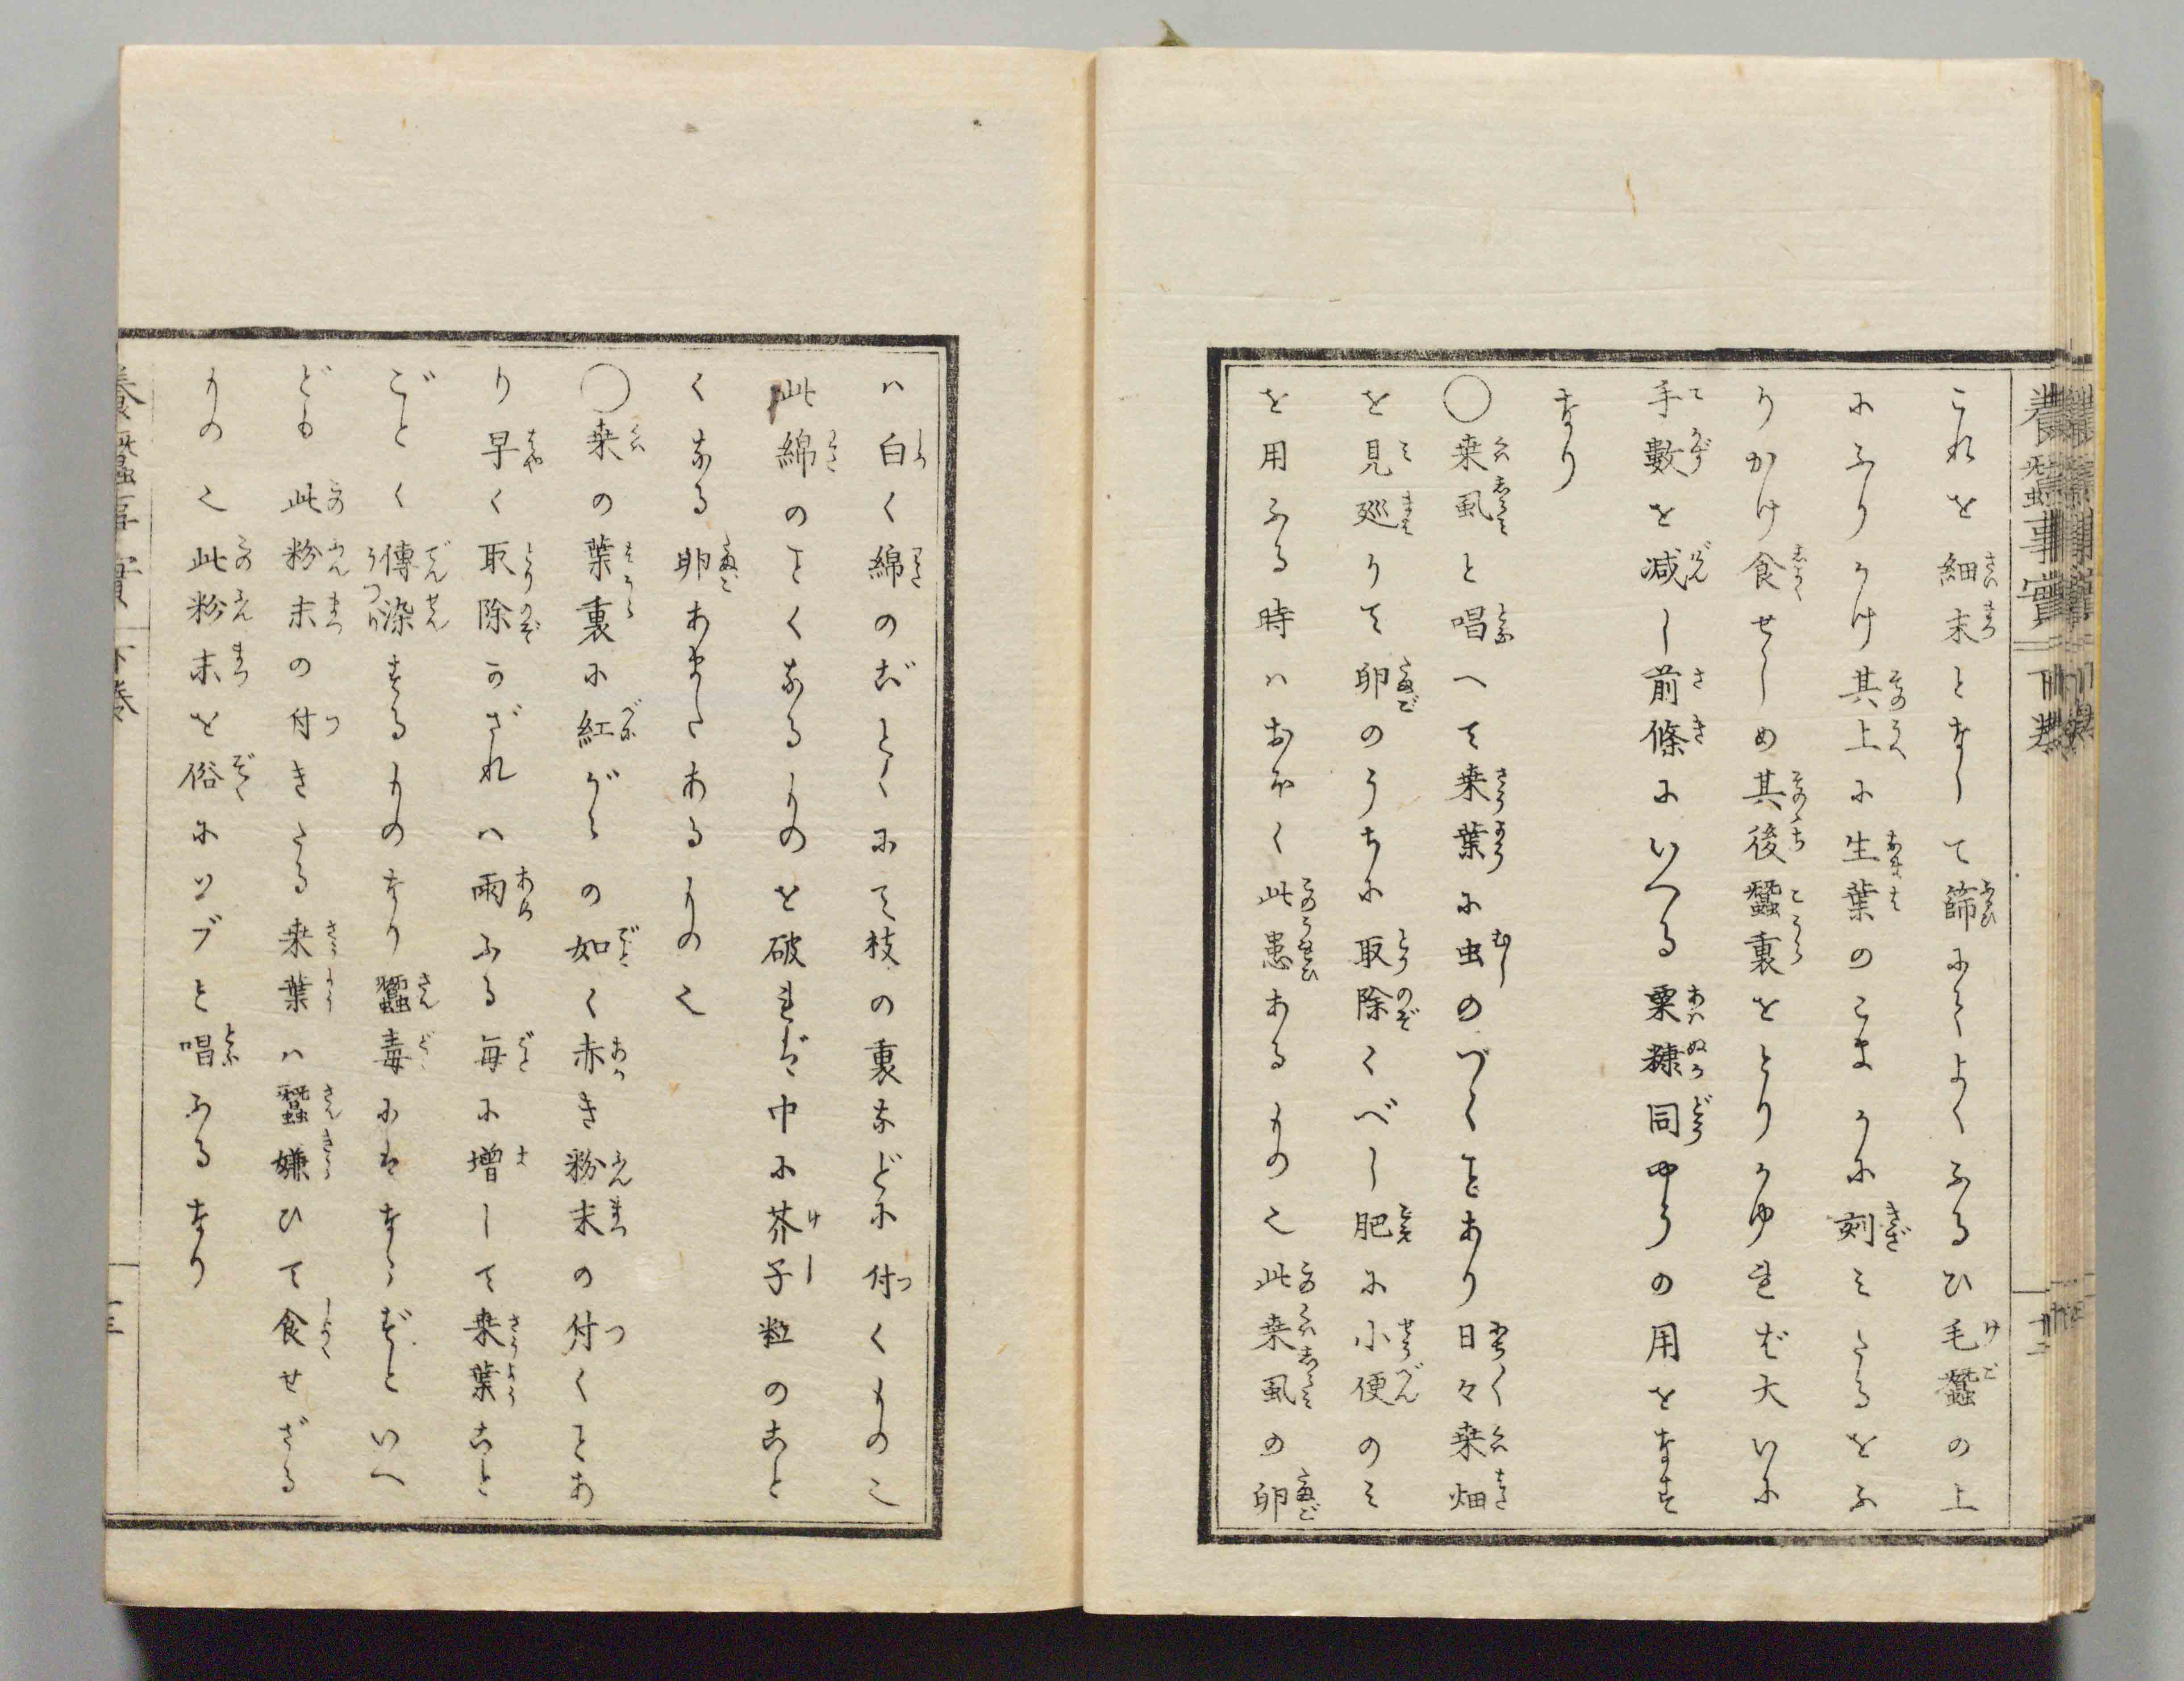 養蠶事實 下卷 十二
これを細末となして篩にてよくふるひ毛蠶の上
にふりかけ其上に生葉のこまかに刻みたるをふ
りかけ食せしめ其後蠶裏をとりかゆれば大いに
手數を减し前條にいへる粟糠同やうの用をなす
なり
〇桒虱と唱へて桒葉に虫のづくことあり日々桒畑
を見廻りて卵のうちに取除くべし肥に小便のみ
を用ふる時ハおほく此患あるもの也此桒虱の卵
ハ白く綿のごとくにて枝の裏などに付くもの也
此綿のことくなるものを破れば中に芥子粒のこと
くなる卵あまたあるもの也
〇桒の葉裏に紅がらの如く赤き粉末の付くことあ
り早く取除かざれハ雨ふる毎に增して桒葉こと
ごとく傳染するものなり蠶毒にはならずといへ
ども此粉末の付きたる桒葉ハ蠶嫌ひて食せざる
もの也此粉末を俗にシブと唱ふるなり
養蠶事實 下卷